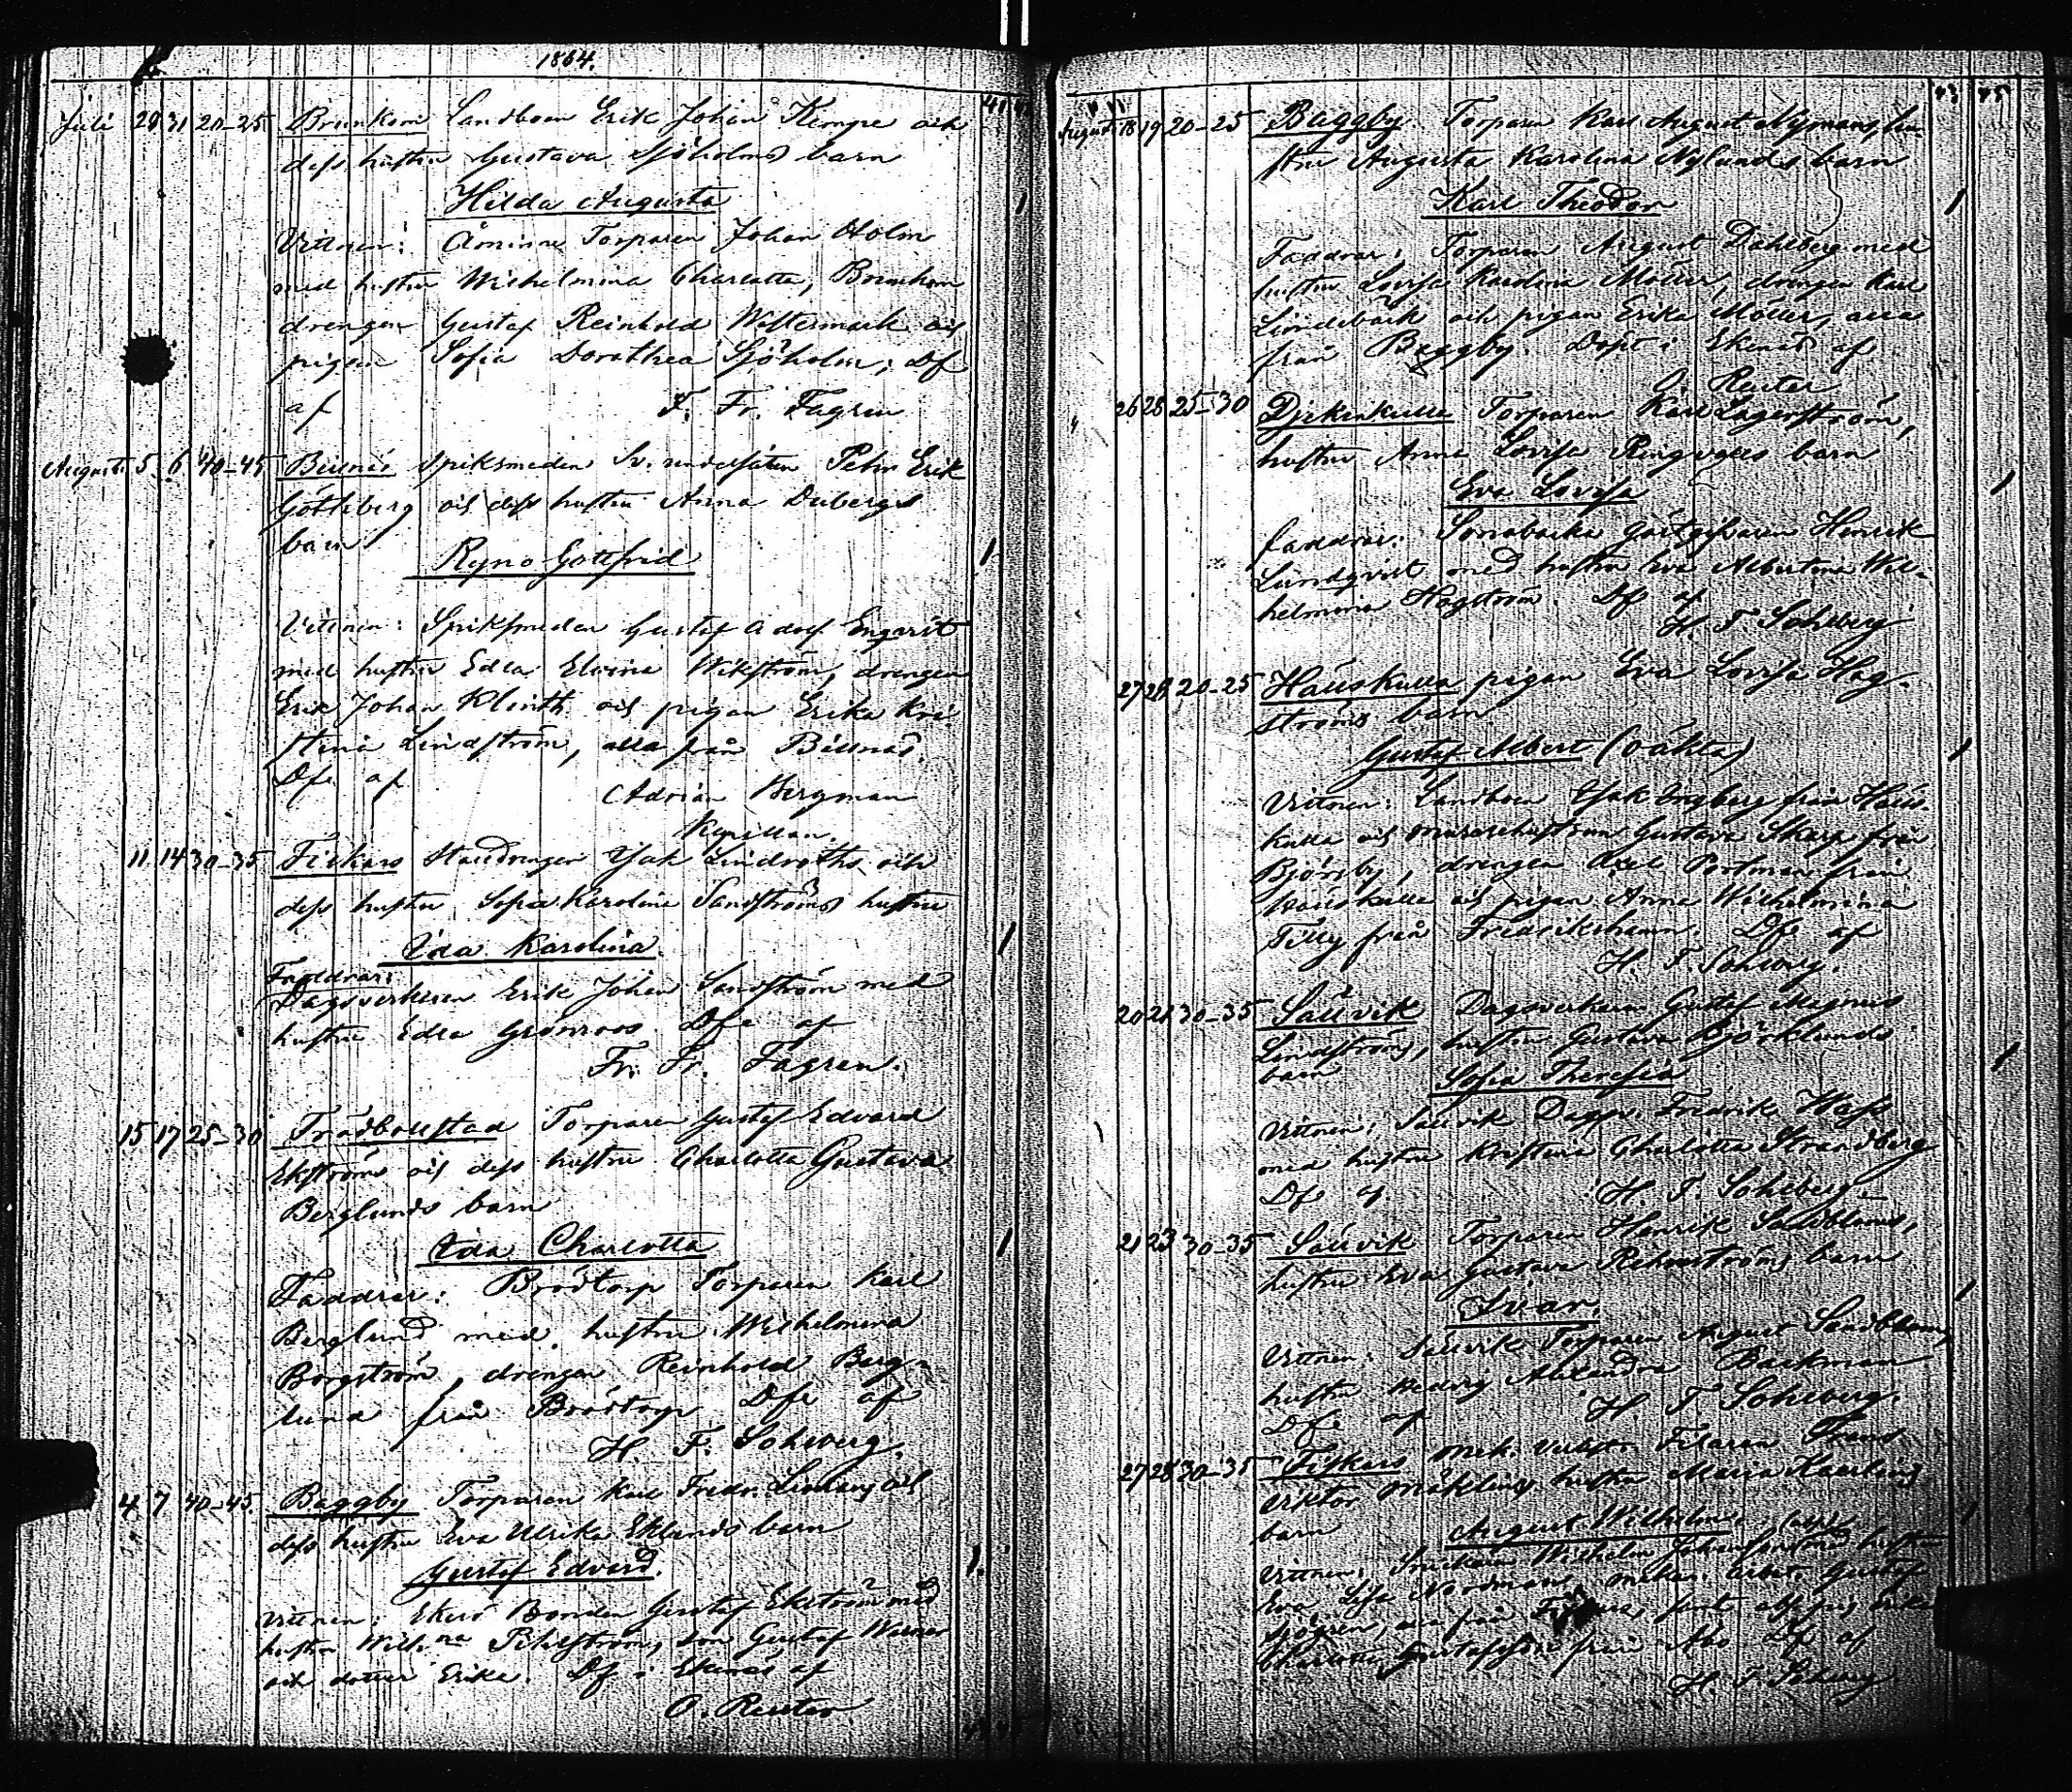 1864.
Juli 29 31 20-25 Brunkom Landboen Erik Johan Kempe och
dess hustru Gustava Sjöholms barn
Hilda Augusta
Vittnen: Åminne Torparen Johan Holm
med hustru Wilhelmina Charlotta, Brunkom
drengen Gustaf Reinhold Westermark och
pigan Sofia Dorothea Sjöholm; Df
af F. Fr. Fagren
Augusti 5 6 40-45 Billnäs Spiksmeden Sv. undersåten Pehr Erik
Götheberg och dess hustru Anna Dubergs
barn
Ryno Gottfrid
Vittnen: Spiksmeden Gustaf Adolf Engqvist
med hustru Edla Elvira Wikström, drengen
Erik Johan Klinth och pigan Erika Kri-
stina Lindström, alla från Billnäs.
Dfe af Adrian Bergman
Kapellan.
11 14 30-35 Fiskars Stalldrengen Isak Lindroths och
dess hustru Sofia Karolina Sandströms hustru
Ida Karolina.
Faddrar:
Dagsverkaren Erik Johan Sandström med
hustru Edla Grönroos. Dfe af
Fr. Fr. Fagren.
15 17 25-30 Trädbollstad Torparen Gustaf Edvard
Ekströms och dess hustru Charlotta Gustava
Berglunds barn
Ida Charlotta
Faddrar: Brödtorp Torparen Karl
Berglund med hustru Wilhelmina
Borgström, drengen Reinhold Berg-
lund från Brödtorp Dfe af
H. F. Sohlberg.
4 7 40-45 Baggby Torparen Karl Fredr. och
dess hustru Eva Ulrika Eklunds barn
Gustaf Edvard.
Vittnen: Ekerö Bonden Gustaf Ekström med
hustru Wilh:na Pihlström, son Gustaf Werner
och dotter Erika. Df i Ekenäs af
O. Reuter
August 18 19 20-25 Baggby Torparen Karl August Nymans, hu-
stru Augusta Karolina Nylunds barn
Karl Theodor
Faddrar: Torparen August Dahlberg med
hustru Lovisa Karolina Möller, drengen Karl
Lindebäck och pigan Erika Möller, alla
från Baggby. Döpt i Ekenäs af
O. Reuter
26 28 25-30 Djekinkulle Torparen Karl Lagerström,
hustru Anna Lovisa barn
Eva Lovisa
Faddrar: Gästgifvaren Henrik
Lundqvist med hustru Eva Albertina Wil-
helmina Högström. Df af
H. F. Sohlberg
27 28 20-25 Hållskulla pigan Eva Lovisa Hag-
ströms barn
Gustaf Albert (oäkta)
Vittnen: Landboen Isak Engberg från Hålls-
kulla och murarehustrun Gustava Skarp från
Björsby, drengen Axel Portman från
Hållskulla och pigan Anna Wilhelmina
Tilly från Fredrikshamn. Dfe af
H. F. Sohlberg.
20 21 30-35 Sällvik Dagsverkaren Gustaf Magnus
Lindströms, hustru Gustava Björklunds
barn Sofia Theresia
Vittnen: Sällvik Dagsv. Fredrik Wass
med hustru Kristina Charlotta Strandberg
Dfe af H. F. Sohlberg.
21 23 30-35 Sällvik Torparen Henrik Sandbloms,
hustru Eva Gustava barn
Ivar.
Vittnen: Sällvik Torparen August Sandblom,
hustru Hedvig Alexandra Backman
Dfe af H. F. Sohlberg.
27 28 30-35 Fiskars mek. verkst. Filaren Frans
Viktor Mäklins hustru Maria Kaerlings
barn August Wilhelm
Vittnen: Wilhelm Johansson med hustru
Eva Lisa Nordman, arbet. Gustaf
Sjögren, alla från Fiskars, samt
Charlotta Gustafsson från Åbo. Df af
H. F. Sohlberg